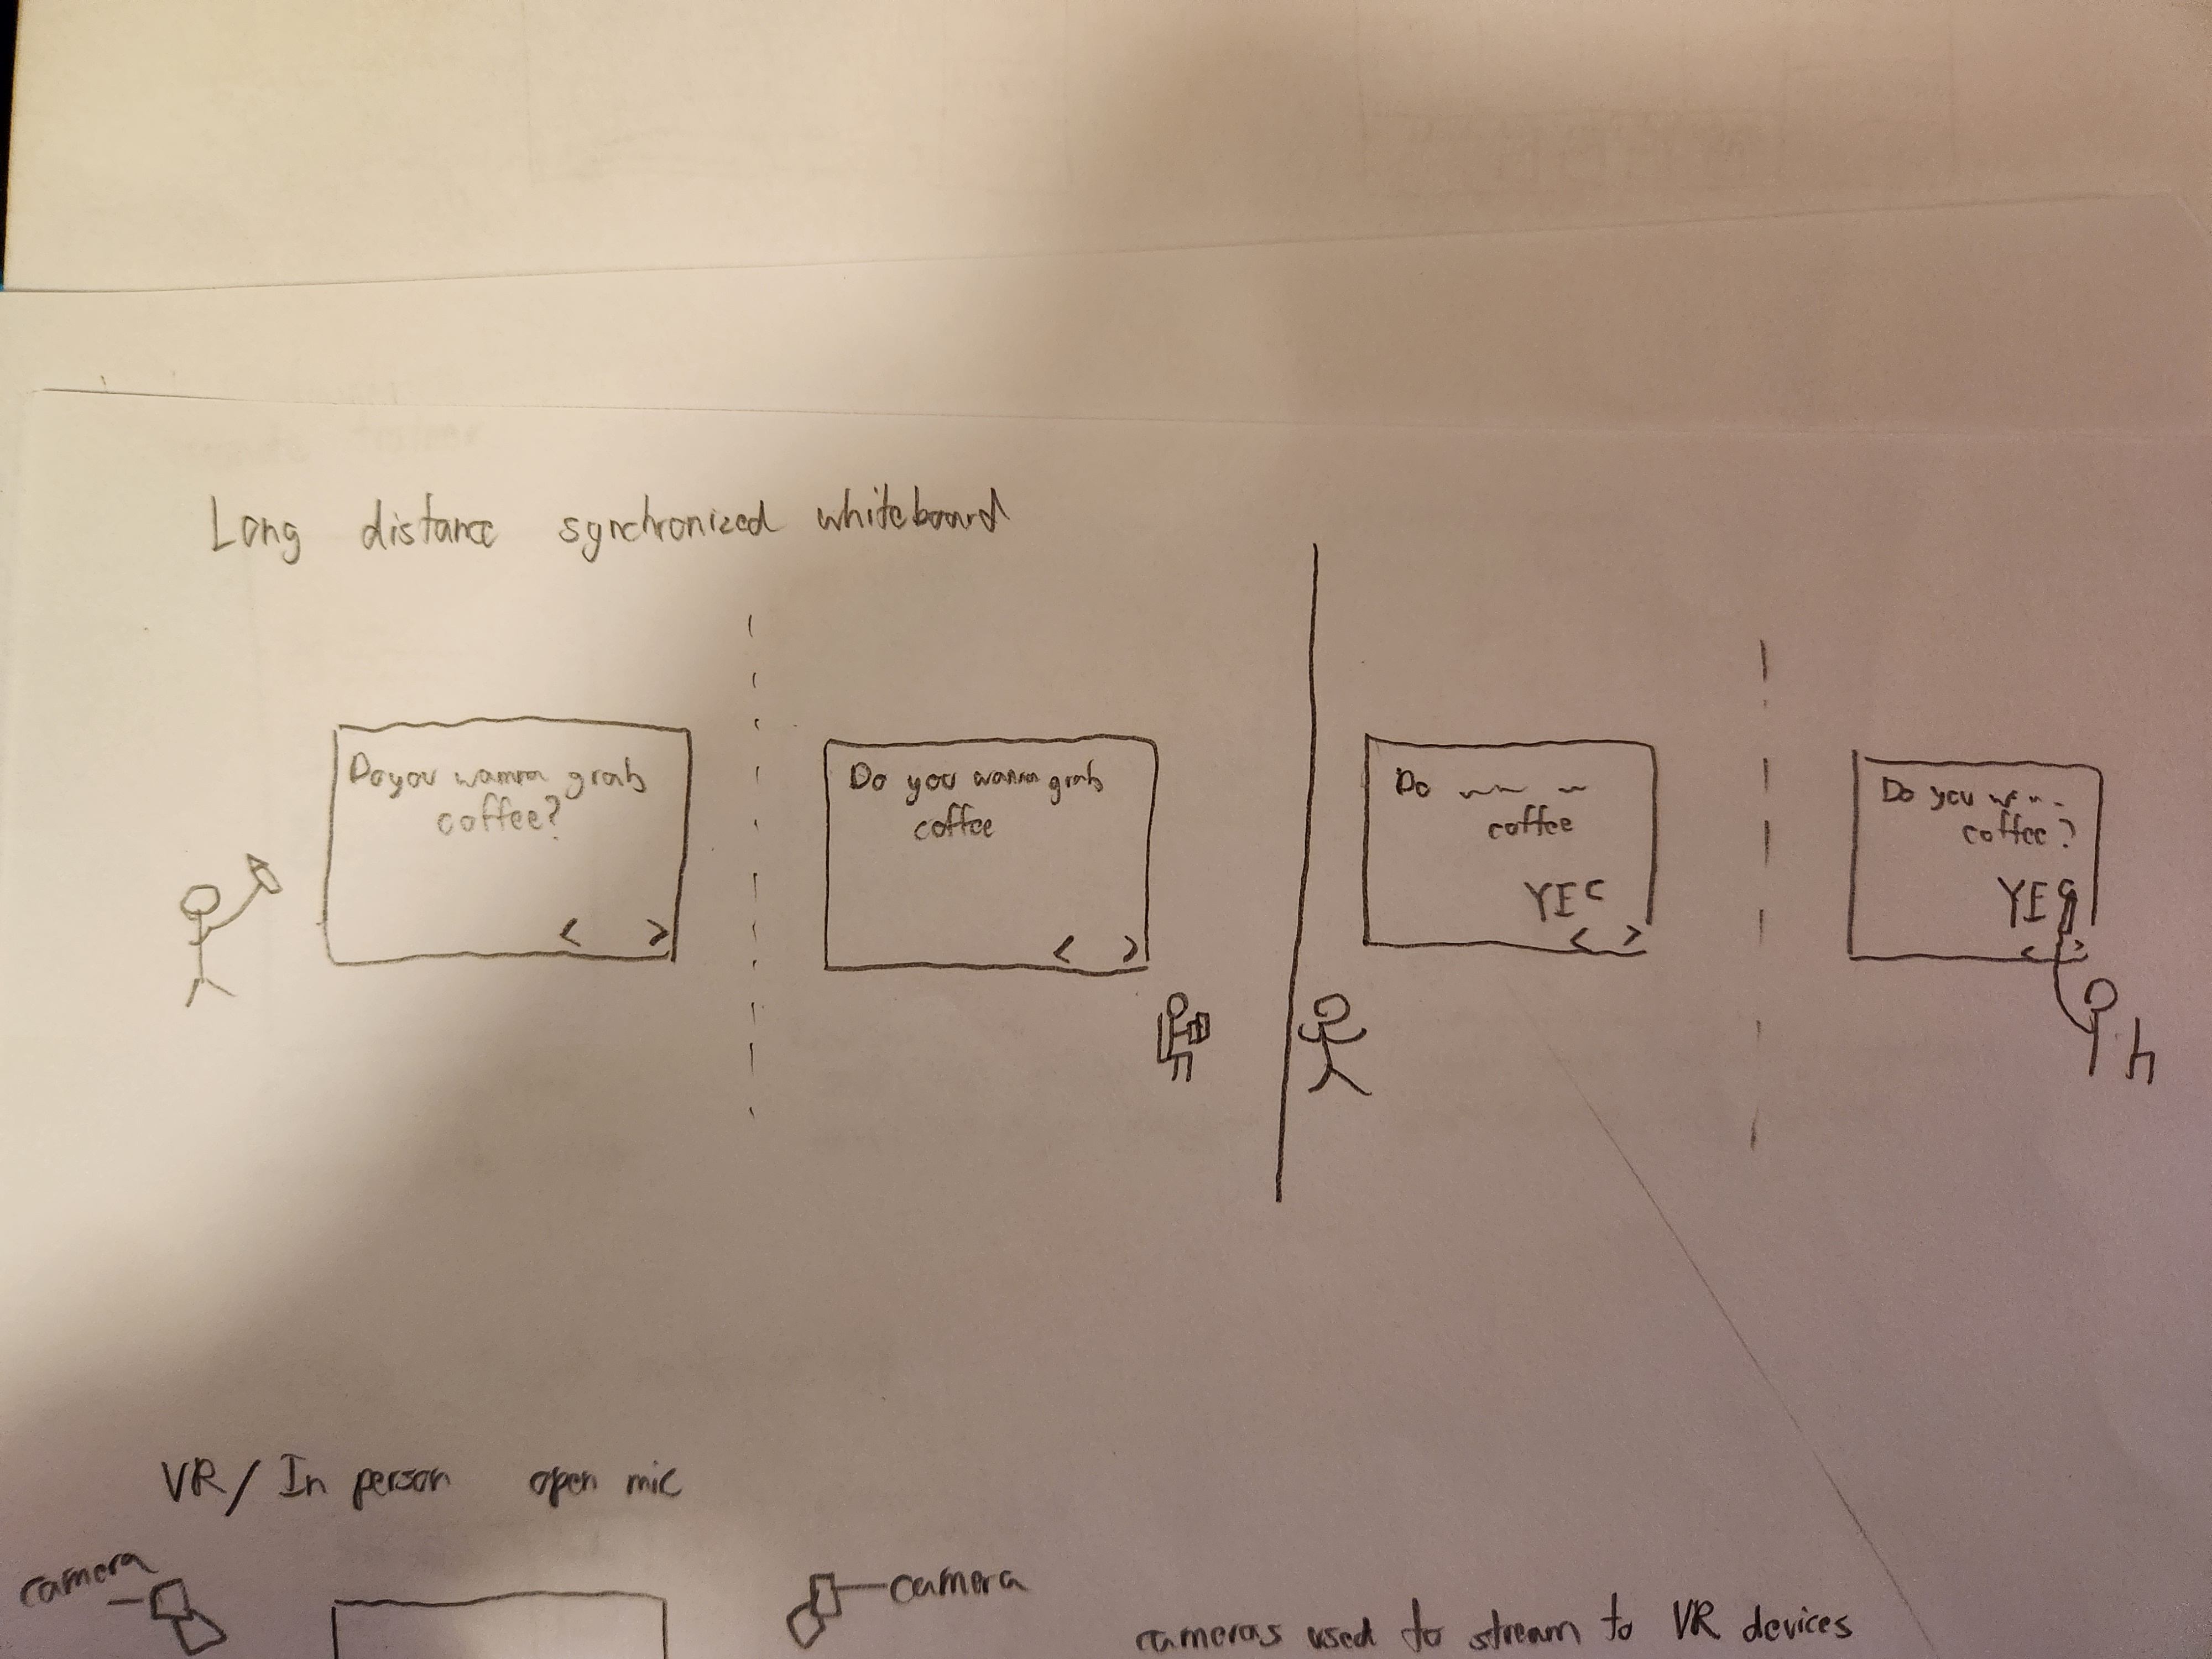 Long distance synchronized whiteboard
Do you wanna grab
coffee?
< >
Do you wanna grab
coffee
< >
Do
coffee
YES
< >
Do you
coffee?
YES
< >
VR/In person open mic
camera
camera
cameras used to stream to VR devices